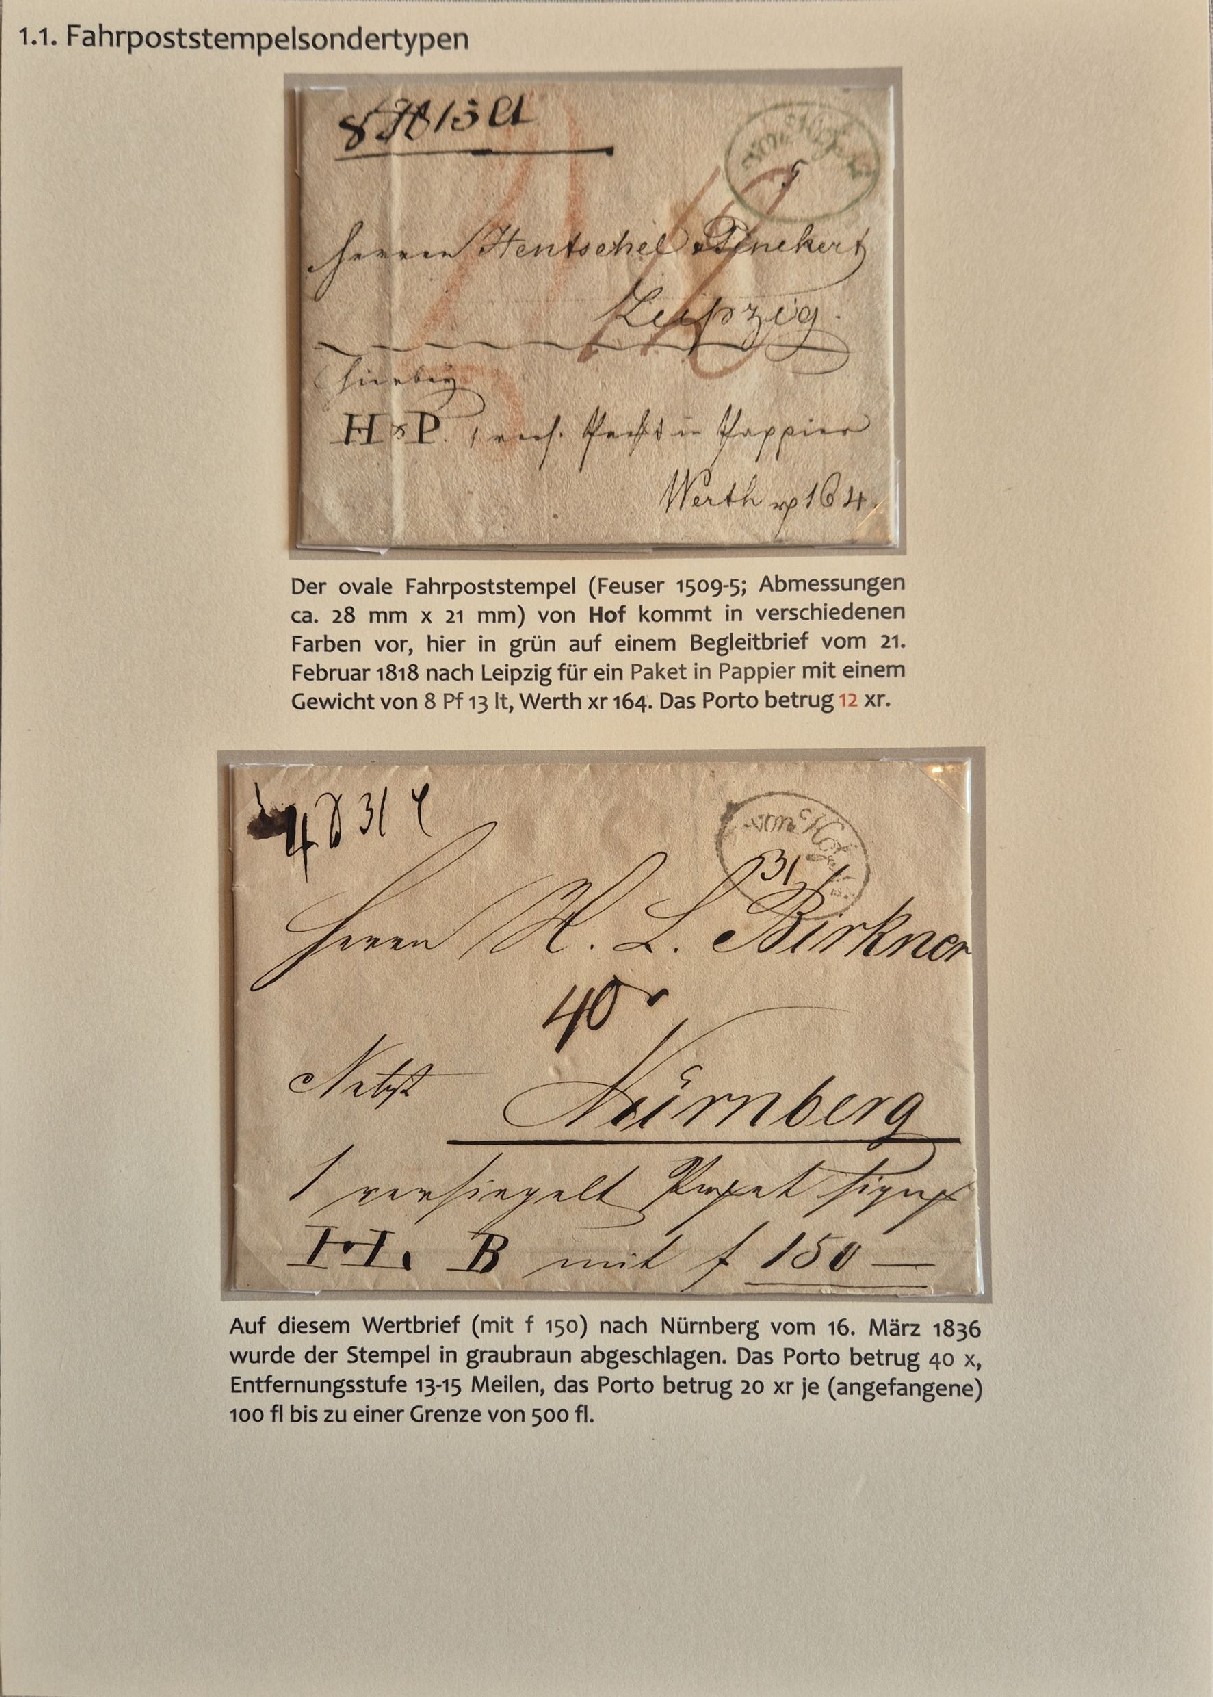 1.1. Fahrpoststempelsondertypen
8 13
von Hof
Herren Hentschel & Pinckert
Leipzig.
hierbey
H & P. 1 Pappier
Werth xr 164.
Der ovale Fahrpoststempel (Feuser 1509-5; Abmessungen
ca. 28 mm x 21 mm) von Hof kommt in verschiedenen
Farben vor, hier in grün auf einem Begleitbrief vom 21.
Februar 1818 nach Leipzig für ein Paket in Pappier mit einem
Gewicht von 8 Pf 13 lt, Werth xr 164. Das Porto betrug 12 xr.
4 31
von Hof
31
Herrn H. L. Birkner
40
Nebst Nürnberg
1 versiegelt Paquet sign
H. B mit f 150 —
Auf diesem Wertbrief (mit f 150) nach Nürnberg vom 16. März 1836
wurde der Stempel in graubraun abgeschlagen. Das Porto betrug 40 x,
Entfernungsstufe 13-15 Meilen, das Porto betrug 20 xr je (angefangene)
100 fl bis zu einer Grenze von 500 fl.